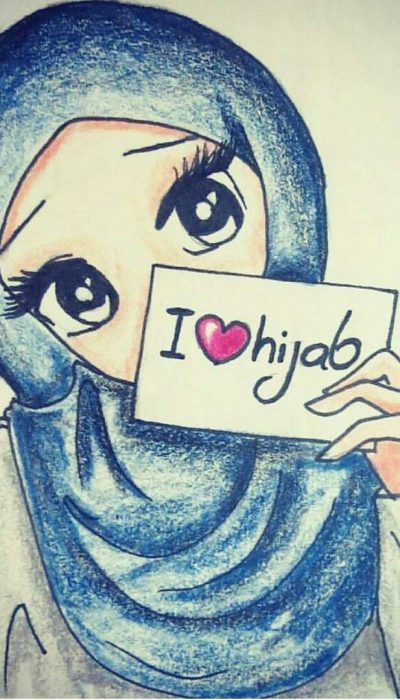 I ❤ hijab